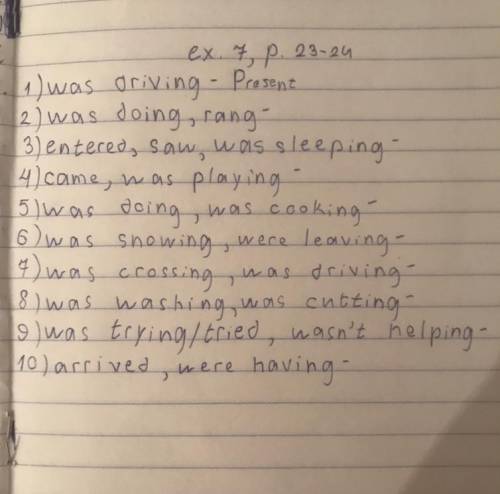 ex. 7, p. 23-24
1) was driving - Present
2) was doing, rang -
3) entered, saw, was sleeping -
4) came, was playing -
5) was doing, was cooking -
6) was snowing, were leaving -
7) was crossing, was driving -
8) was washing, was cutting -
9) was trying/tried, wasn't helping -
10) arrived, were having -